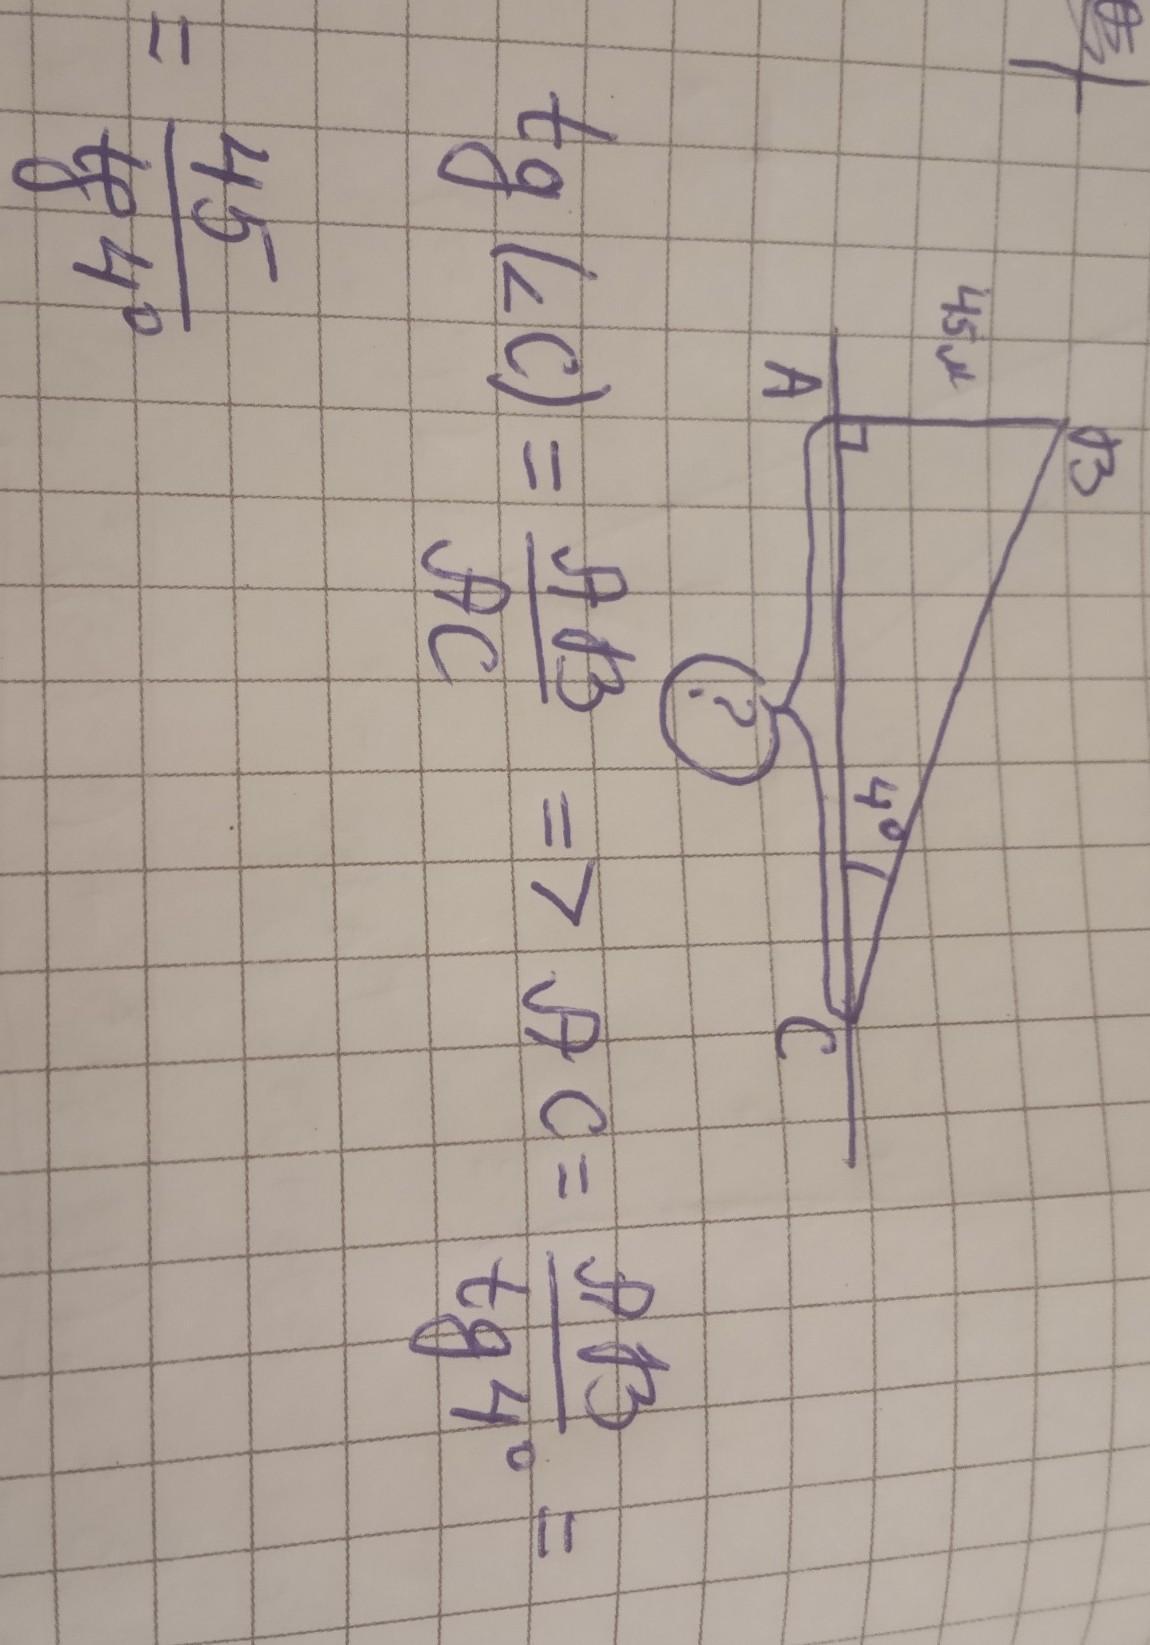 B
45 м
4°
A
C
?
tg (∠C) = AB/AC => AC = AB/tg 4° =
= 45/tg 4°